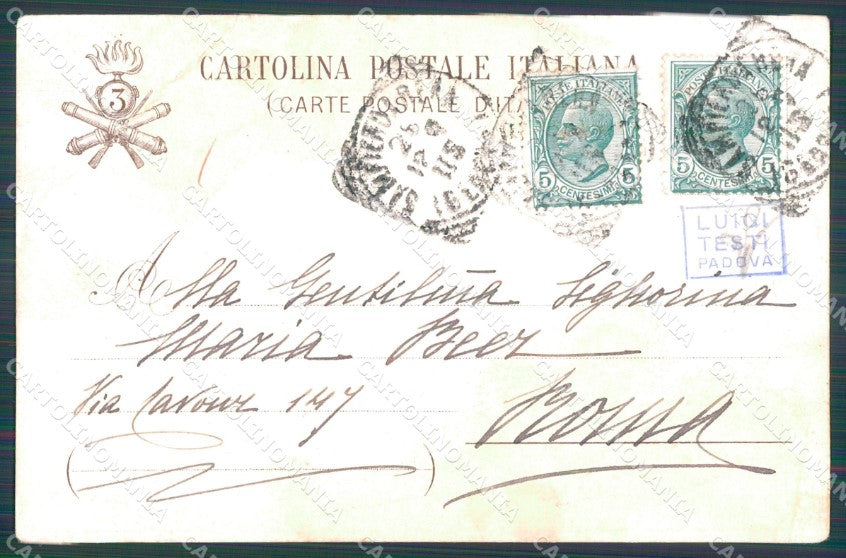 3
CARTOLINA POSTALE ITALIANA
(CARTE POSTALE D'ITA
POSTE ITALIANE
5 CENTESIMI 5
5 CENTESIMI 5
LUIGI
TESTI
PADOVA
Alla Gentilma Signorina
Maria Beer
Via Cavour 147
Roma
CARTOLINOMANIA